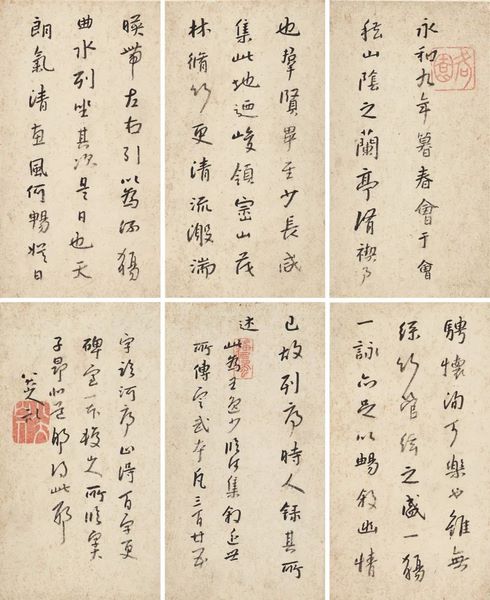 永和九年暮春會于會
稽山陰之蘭亭脩禊事
也羣賢畢至少長咸
集此地迺峻領崇山茂
林脩竹更清流激湍
暎帶左右引以為流觴
曲水列坐其次是日也天
朗氣清惠風何暢娛目
騁懷洵可樂也雖無
絲竹管絃之盛一觴
一詠亦足以暢敘幽情
已故列序時人錄其所
述
此為王逸少臨河集敘近世
所傳定武本凡三百廿五
字 河序止得百字更
碑 一本 所臨
子昂 此耶
八大山人